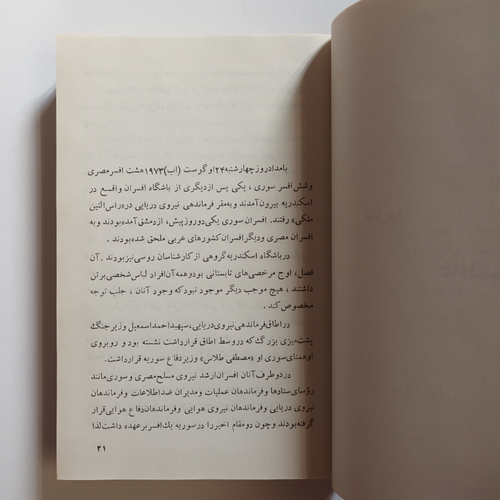 بامداد روز چهارشنبه ۲۴ اوگوست (اب) ۱۹۷۳ هشت افسر مصری
وشش افسر سوری ، یکی پس ازدیگری از باشگاه افسران واقع در
اسکندریه بیرون آمدند وبه مقر فرماندهی نیروی دریایی در «راس التین
ملکی» رفتند. افسران سوری یکی دوروز پیش، ازدمشق آمده بودند و به
افسران مصری ودیگر افسران کشورهای عربی ملحق شده بودند .
در باشگاه اسکندریه گروهی از کارشناسان روسی نیز بودند . آن
فصل، اوج مرخصی‌های تابستانی بود وهمه آن افراد لباس شخصی برتن
داشتند ، هیچ موجب دیگر موجود نبود که وجود آنان ، جلب توجه
مخصوص کند .
در اطاق فرماندهی نیروی دریایی، سپهبد احمد اسمعیل وزیر جنگ
پشت میزی بزرگ که در وسط اطاق قرار داشت نشسته بود و روبروی
او همتای سوری او «مصطفی طلاس» وزیر دفاع سوریه قرار داشت.
در دو طرف آنان افسران ارشد نیروی مسلح مصری و سوری مانند
رؤسای ستادها و فرماندهان عملیات و مدیران ضد اطلاعات و فرماندهان
نیروی دریایی و فرماندهان نیروی هوایی و فرماندهان دفاع هوایی قرار
گرفته بودند و چون دو مقام اخیر را در سوریه یك افسر بر عهده داشت لذا
۳۱